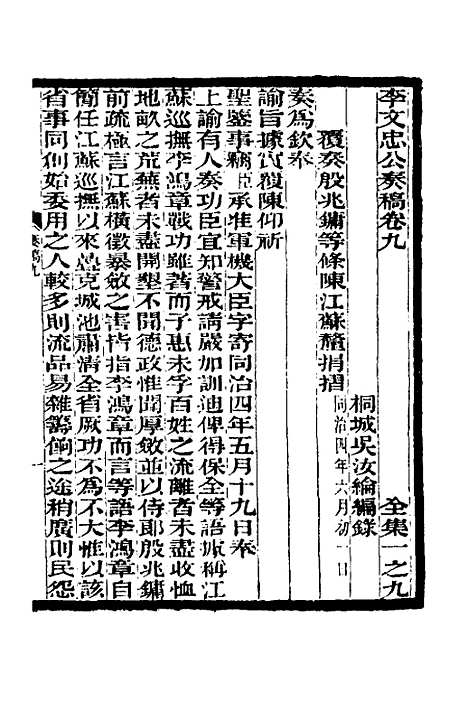 李文忠公奏稿卷九　全集一之九
桐城吳汝綸編錄
覆奏殷兆鏞等條陳江蘇釐捐摺 同治四年六月初一日
奏為欽奉
諭旨據實覆陳仰祈
聖鑒事竊臣承准軍機大臣字寄同治四年五月十九日奉
上諭有人奏功臣宜知警戒請嚴加訓迪俾得保全等語據稱江
蘇巡撫李鴻章戰功雖著而子惠未孚百姓之流離者未盡收恤
地畝之荒蕪者未盡開墾不聞德政惟聞厚斂並以侍郎殷兆鏞
前疏極言江蘇橫徵暴斂之害皆指李鴻章而言等語李鴻章自
簡任江蘇巡撫以來疊克城池肅清全省厥功不為不大惟以該
省事同創始委用之人較多則流品易雜籌餉之途稍廣則民怨
奏稿九
一